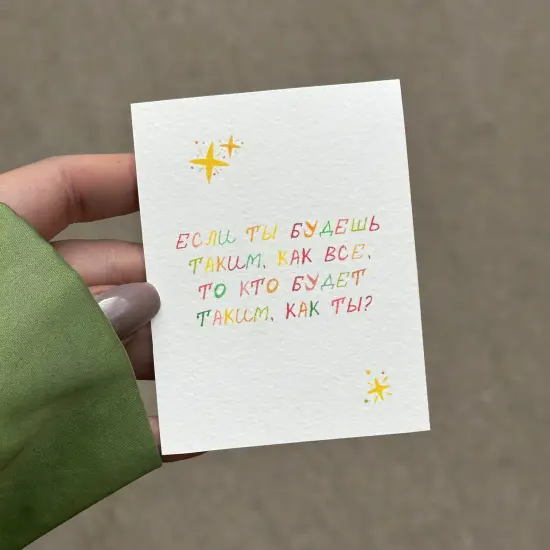 ЕСЛИ ТЫ БУДЕШЬ
ТАКИМ, КАК ВСЕ,
ТО КТО БУДЕТ
ТАКИМ, КАК ТЫ?